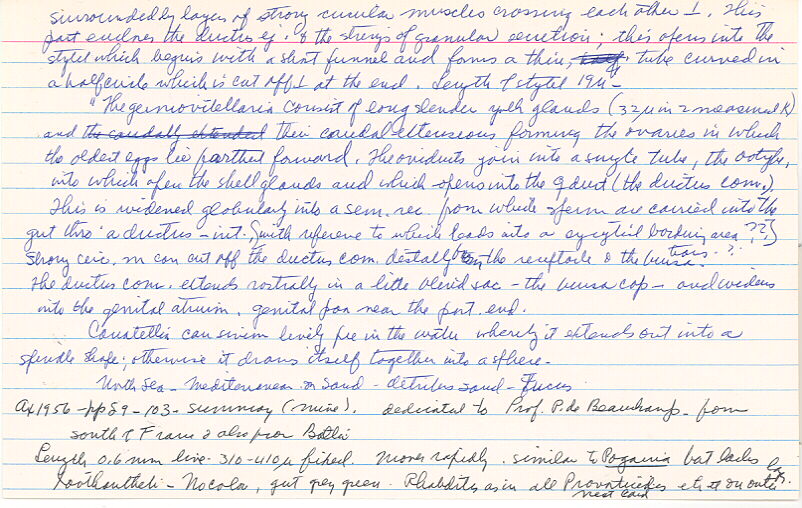 surrounded by layers of strong circular muscles crossing each other ⊥. This
part encloses the ductus ej. & the strings of granular secretion; this opens into the
stylet which begins with a short funnel and forms a thin, tube curved in
a half circle which is cut off ⊥ at the end. Length of stylet 19µ -
"The germovitellaria consist of long slender yolk glands (32µ in 2 measured K)
and the caudally extended their caudal extensions forming the ovaries in which
the oldest eggs lie farthest forward. The oviducts join into a single tube, the ootype,
into which open the shell glands and which opens into the ♀ duct (the ductus com.).
This is widened globularly into a sem. rec. from which sperm are carried into the
gut thro' a ductus - int. {with reference to which leads into a bordering area ??}
Strong circ. m can cut off the ductus com. distally the receptacle & the bursa. ?
The ductus com. extends rostrally in a little blind sac - the bursa cop - and widens
into the genital atrium. genital pore near the post. end.
can swim lively free in the water whereby it extends out into a
spindle shape; otherwise it draws itself together into a sphere -
North Sea - Mediterranean on Sand - detritus sand - Fucus
Ax 1956 - pp 89 - 103 - summary (mine). dedicated to Prof. P. de Beauchamp - from
south of France & also from
Length 0.6 mm live - 310-410µ fixed. Moves rapidly. similar to Pogaina but lacks
- No color, gut grey green. Rhabdites as in all
next card